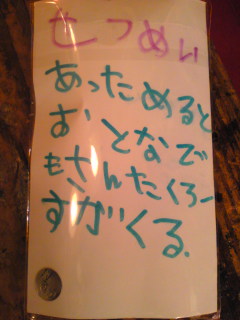 せつめい
あったためると
おとなで
もさんたくろー
すがくる.